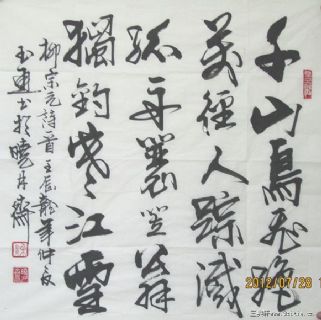 千山鳥飛絶
萬徑人踪滅
孤舟蓑笠翁
獨釣寒江雪
柳宗元詩一首壬辰龍年仲夏
玉重書於曉月齋
2012/07/28